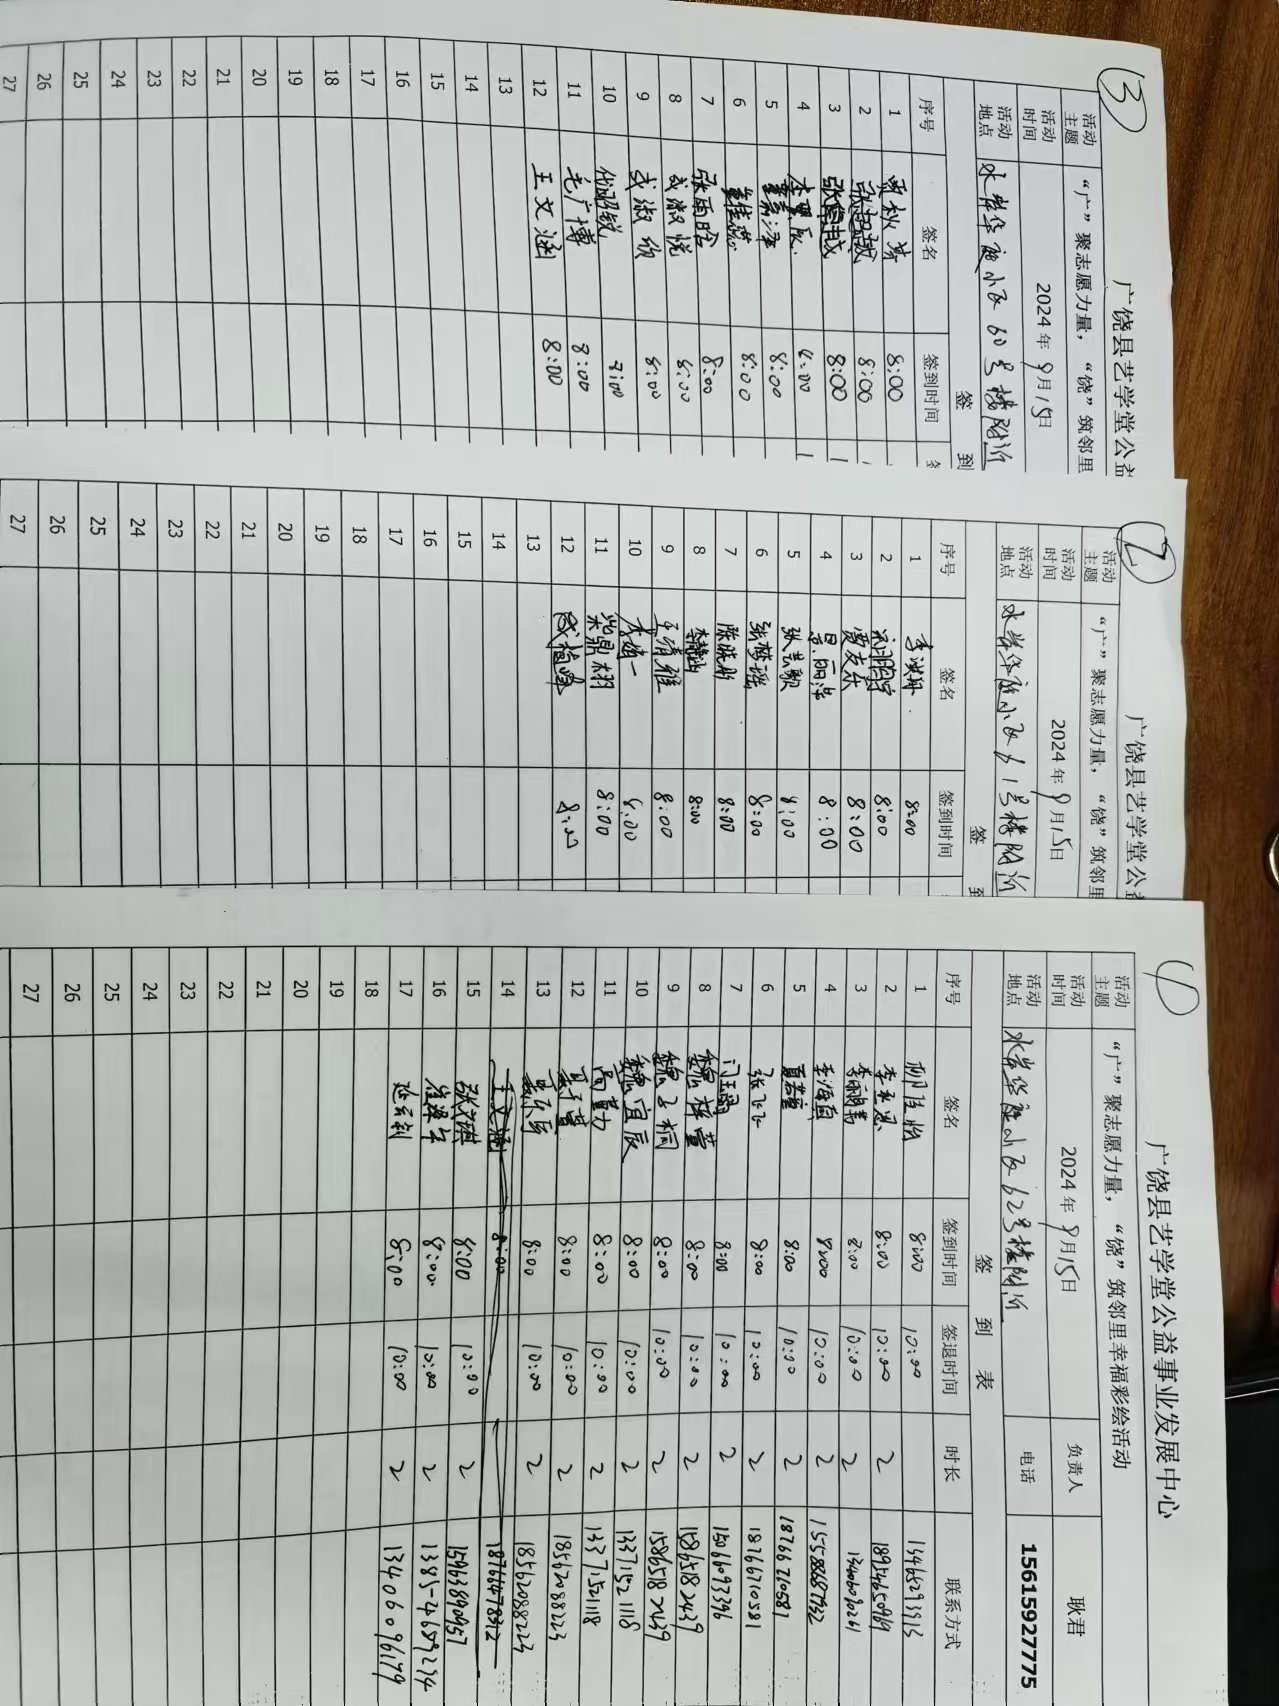 ③
广饶县艺学堂公益
活动主题 “广”聚志愿力量，“饶”筑邻里
活动时间 2024年9月15日
活动地点 水岸华庭小区60号楼附近
签 到
序号 签名 签到时间 签
1 贾秋芳 8:00
2 张超越 8:00
3 8:00
4 8:00
5 8:00
6 8:00
7 张雨晗 8:00
8 成淑悦 8:00
9 成淑欣 8:00
10 8:00
11 毛广博 8:00
12 王文涵 8:00
13
14
15
16
17
18
19
20
21
22
23
24
25
26
27
②
广饶县艺学堂公益
活动主题 “广”聚志愿力量，“饶”筑邻里
活动时间 2024年9月15日
活动地点 水岸华庭小区61号楼附近
签 到
序号 签名 签到时间
1 8:00
2 8:00
3 贾友东 8:00
4 8:00
5 8:00
6 张梦瑶 8:00
7 陈晓彤 8:00
8 8:00
9 王清雅 8:00
10 8:00
11 8:00
12 8:00
13
14
15
16
17
18
19
20
21
22
23
24
25
26
27
①
广饶县艺学堂公益事业发展中心
活动主题 “广”聚志愿力量，“饶”筑邻里幸福彩绘活动
活动时间 2024年9月15日 负责人 耿君
活动地点 水岸华庭小区62号楼附近 电话 15615927775
签 到 表
序号 签名 签到时间 签退时间 时长 联系方式
1 柳佳怡 8:00 10:00
2 李永恩 8:00 10:00 2 18954650969
3 8:00 10:00 2 13406090261
4 李海燕 8:00 10:00 2 15588687932
5 8:00 10:00 2 18766710581
6 张飞飞 8:00 10:00 2 18766710581
7 门玉露 8:00 10:00 2 15066093396
8 魏梓萱 8:00 10:00 2 15865182439
9 魏子桐 8:00 10:00 2 15865182439
10 魏宜辰 8:00 10:00 2 13371521118
11 8:00 10:00 2 13371521118
12 8:00 10:00 2 18562088223
13 8:00 10:00 2 18562088223
14 王文涵 8:00 18766478312
15 张文琪 8:00 10:00 2 15963890957
16 崔海宁 8:00 10:00 2 13854689234
17 8:00 10:00 2 13406096179
18
19
20
21
22
23
24
25
26
27